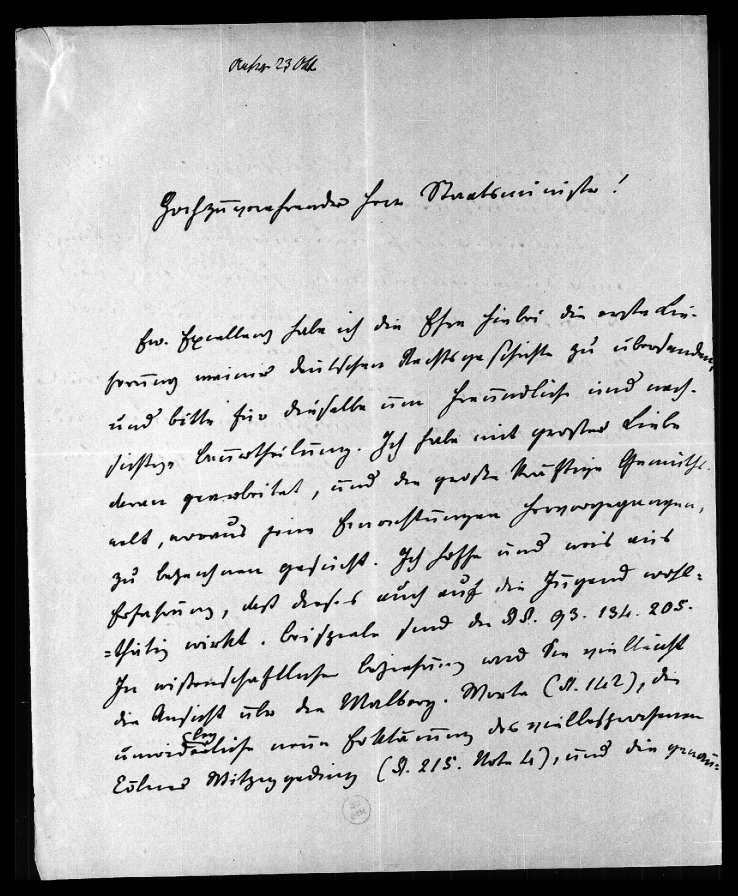 23 Okt
Hochzuverehrender Herr Staatsminister!
Ew. Excellenz habe ich die Ehre hiebei die erste Lie-
ferung meiner deutschen Rechtsgeschichte zu übersenden,
und bitte für dieselbe um freundliche und nach-
sichtige Beurtheilung. Ich habe mit großer Liebe
daran gearbeitet, und die große kräftige Gemüths-
welt, woraus jene Einrichtungen hervorgegangen,
zu bezeichnen gesucht. Ich hoffe und weis aus
Erfahrung, daß dieses auch auf die Jugend wohl-
=thätig wirkt. Beispiele sind die §§. 93. 134. 205.
In wissenschaftlicher Beziehung wird Sie vielleicht
die Ansicht über die Malberg. Worte (S. 142), die
unwiderlegliche neue Erklärung des vielbesprochenen
Cölner Witziggeding (S. 215. Note 4), und die genau-